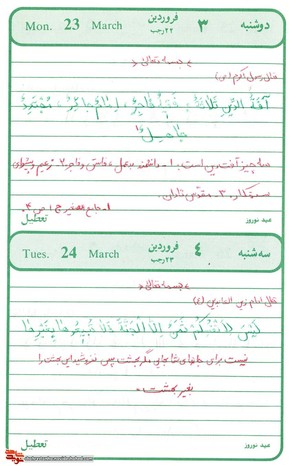 Mon. 23 March فروردین ۳ دوشنبه
۲۲ رجب
بسمه تعالی
قال رسول اکرم (ص)
آفة الدین ثلاثة: فقیه فاجر، امام جائر، مجتهد
جاهل
سه چیز آفت دین است: ۱- دانشمند بدعمل و فاسق و فاجر ۲. زعیم و پیشوای
ستمکار. ۳. مقدس نادان.
۱- جامع الصغیر ج ۱ ص ۴.
عید نوروز تعطیل
Tues. 24 March فروردین ۴ سه شنبه
۲۳ رجب
بسمه تعالی
قال امام زین العابدین (ع)
لیس لانفسکم ثمن الا الجنة فلا تبیعوها بغیرها
نیست برای جانهای شما بهایی مگر بهشت پس نفروشید این بهشت را
بغیر بهشت.
عید نوروز تعطیل